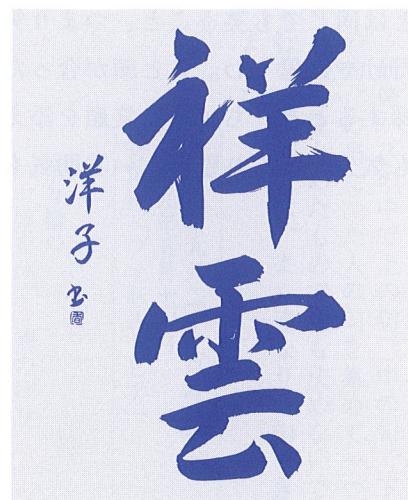 祥雲
洋子書